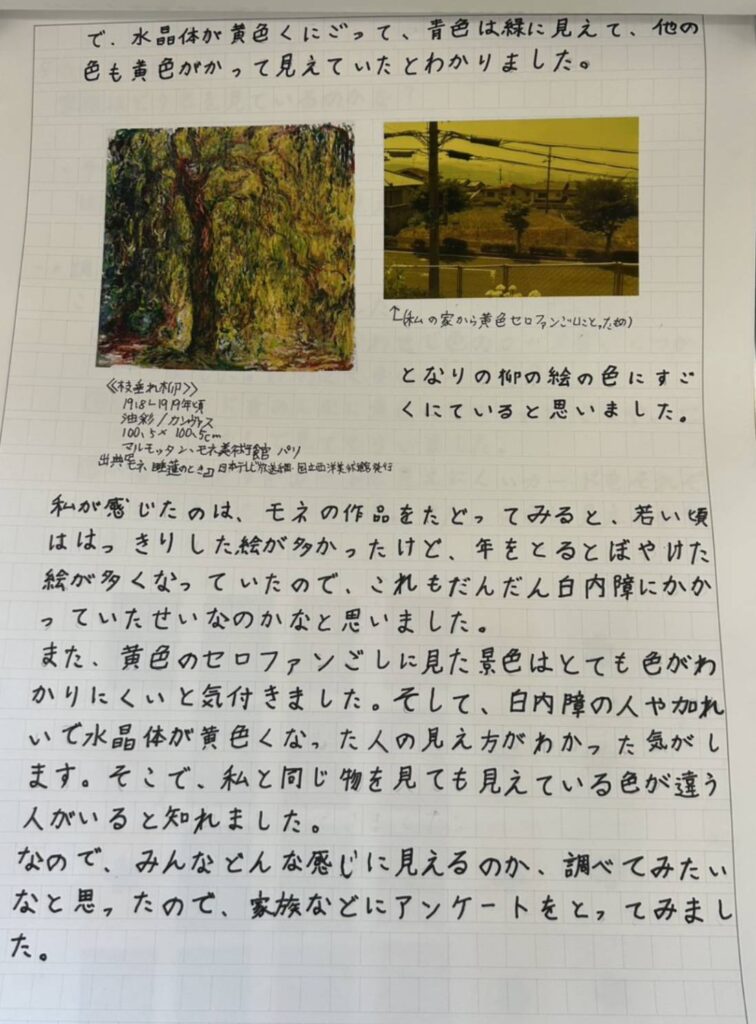 で、水晶体が黄色くにごって、青色は緑に見えて、他の
色も黄色がかって見えていたとわかりました。
↑(私の家から黄色セロファンごしにとったもの)
《枝垂れ柳》
1918-1919年頃
油彩/カンヴァス
100.5×100.5cm
マルモッタン・モネ美術館 パリ
出典『モネ 睡蓮のとき』 日本テレビ放送網 国立西洋美術館発行
となりの柳の絵の色にすご
くにていると思いました。
私が感じたのは、モネの作品をたどってみると、若い頃
ははっきりした絵が多かったけど、年をとるとぼやけた
絵が多くなっていたので、これもだんだん白内障にかか
っていたせいなのかなと思いました。
また、黄色のセロファンごしに見た景色はとても色がわ
かりにくいと気付きました。そして、白内障の人や加れ
いで水晶体が黄色くなった人の見え方がわかった気がし
ます。そこで、私と同じ物を見ても見えている色が違う
人がいると知れました。
なので、みんなどんな感じに見えるのか、調べてみたい
なと思ったので、家族などにアンケートをとってみまし
た。